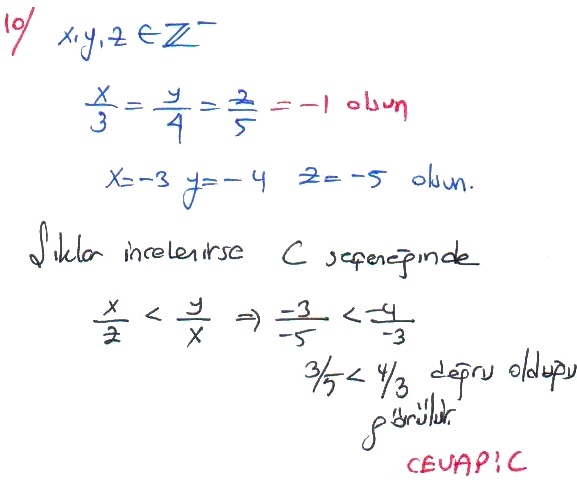 10/ x,y,z ∈ Z⁻
x/3 = y/4 = z/5 = -1 olsun
x=-3 y=-4 z=-5 olsun.
Şıklar incelenirse C seçeneğinde
x/z < y/x ⇒ -3/-5 < -4/-3
3/5 < 4/3 doğru olduğu
görülür.
CEVAP: C